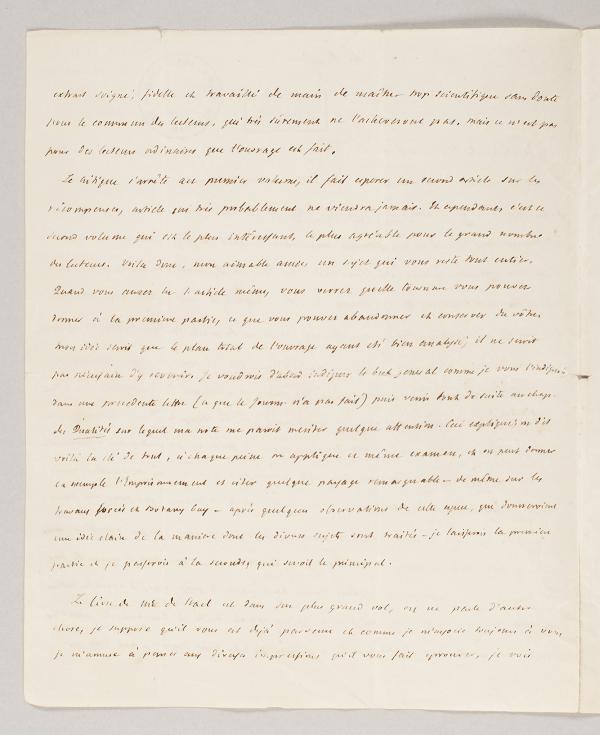 extrait soigné, fidelle et travaillé de main de maître trop scientifique sans doute
pour le commun des lecteurs, qui très sûrement ne l'acheveront pas. mais ce n'est pas
pour des lecteurs ordinaires que l'ouvrage est fait.
Le critique s'arrête au premier volume, il fait esperer un second article sur les
récompenses, article qui très probablement ne viendra jamais. Et cependant, c'est ce
second volume qui est le plus intéressant, le plus agréable pour le grand nombre
des lecteurs. Voilà donc, mon aimable amie, un sujet qui vous reste tout entier.
Quand vous aurez lu l'article même, vous verrez quelle tournure vous pouvez
donner à la premiere partie, ce que vous pouvez abandonner et conserver du vôtre.
mon idée seroit que le plan total de l'ouvrage ayant été bien analysé, il ne seroit
pas nécessaire d'y revenir. Je voudrois d'abord indiquer le but general comme je vous l'indiquois
dans une precedente lettre (ce que le Journ. n'a pas fait) puis venir tout de suite au chap.
des Qualités sur lequel ma note me paroit meriter quelque attention. Ceci expliqué, on dit
voilà la clé de tout, à chaque peine on applique ce même examen, et on peut donner
en exemple l'Emprisonnement et citer quelque passage remarquable – de même sur les
travaux forcés en Botany bay – après quelques observations de cette espece, qui donneroient
une idée claire de la maniere dont les divers sujets sont traités – je laisserois la premiere
partie et je passerois à la seconde, qui seroit le principal.
Le livre de Mde. de Stael est dans son plus grand vol, on ne parle d'autre
chose, je suppose qu'il vous est déjà parvenu et comme je m'associe toujours à vous
je m'amuse à penser aux diverses impressions qu'il vous fait eprouver, je vois